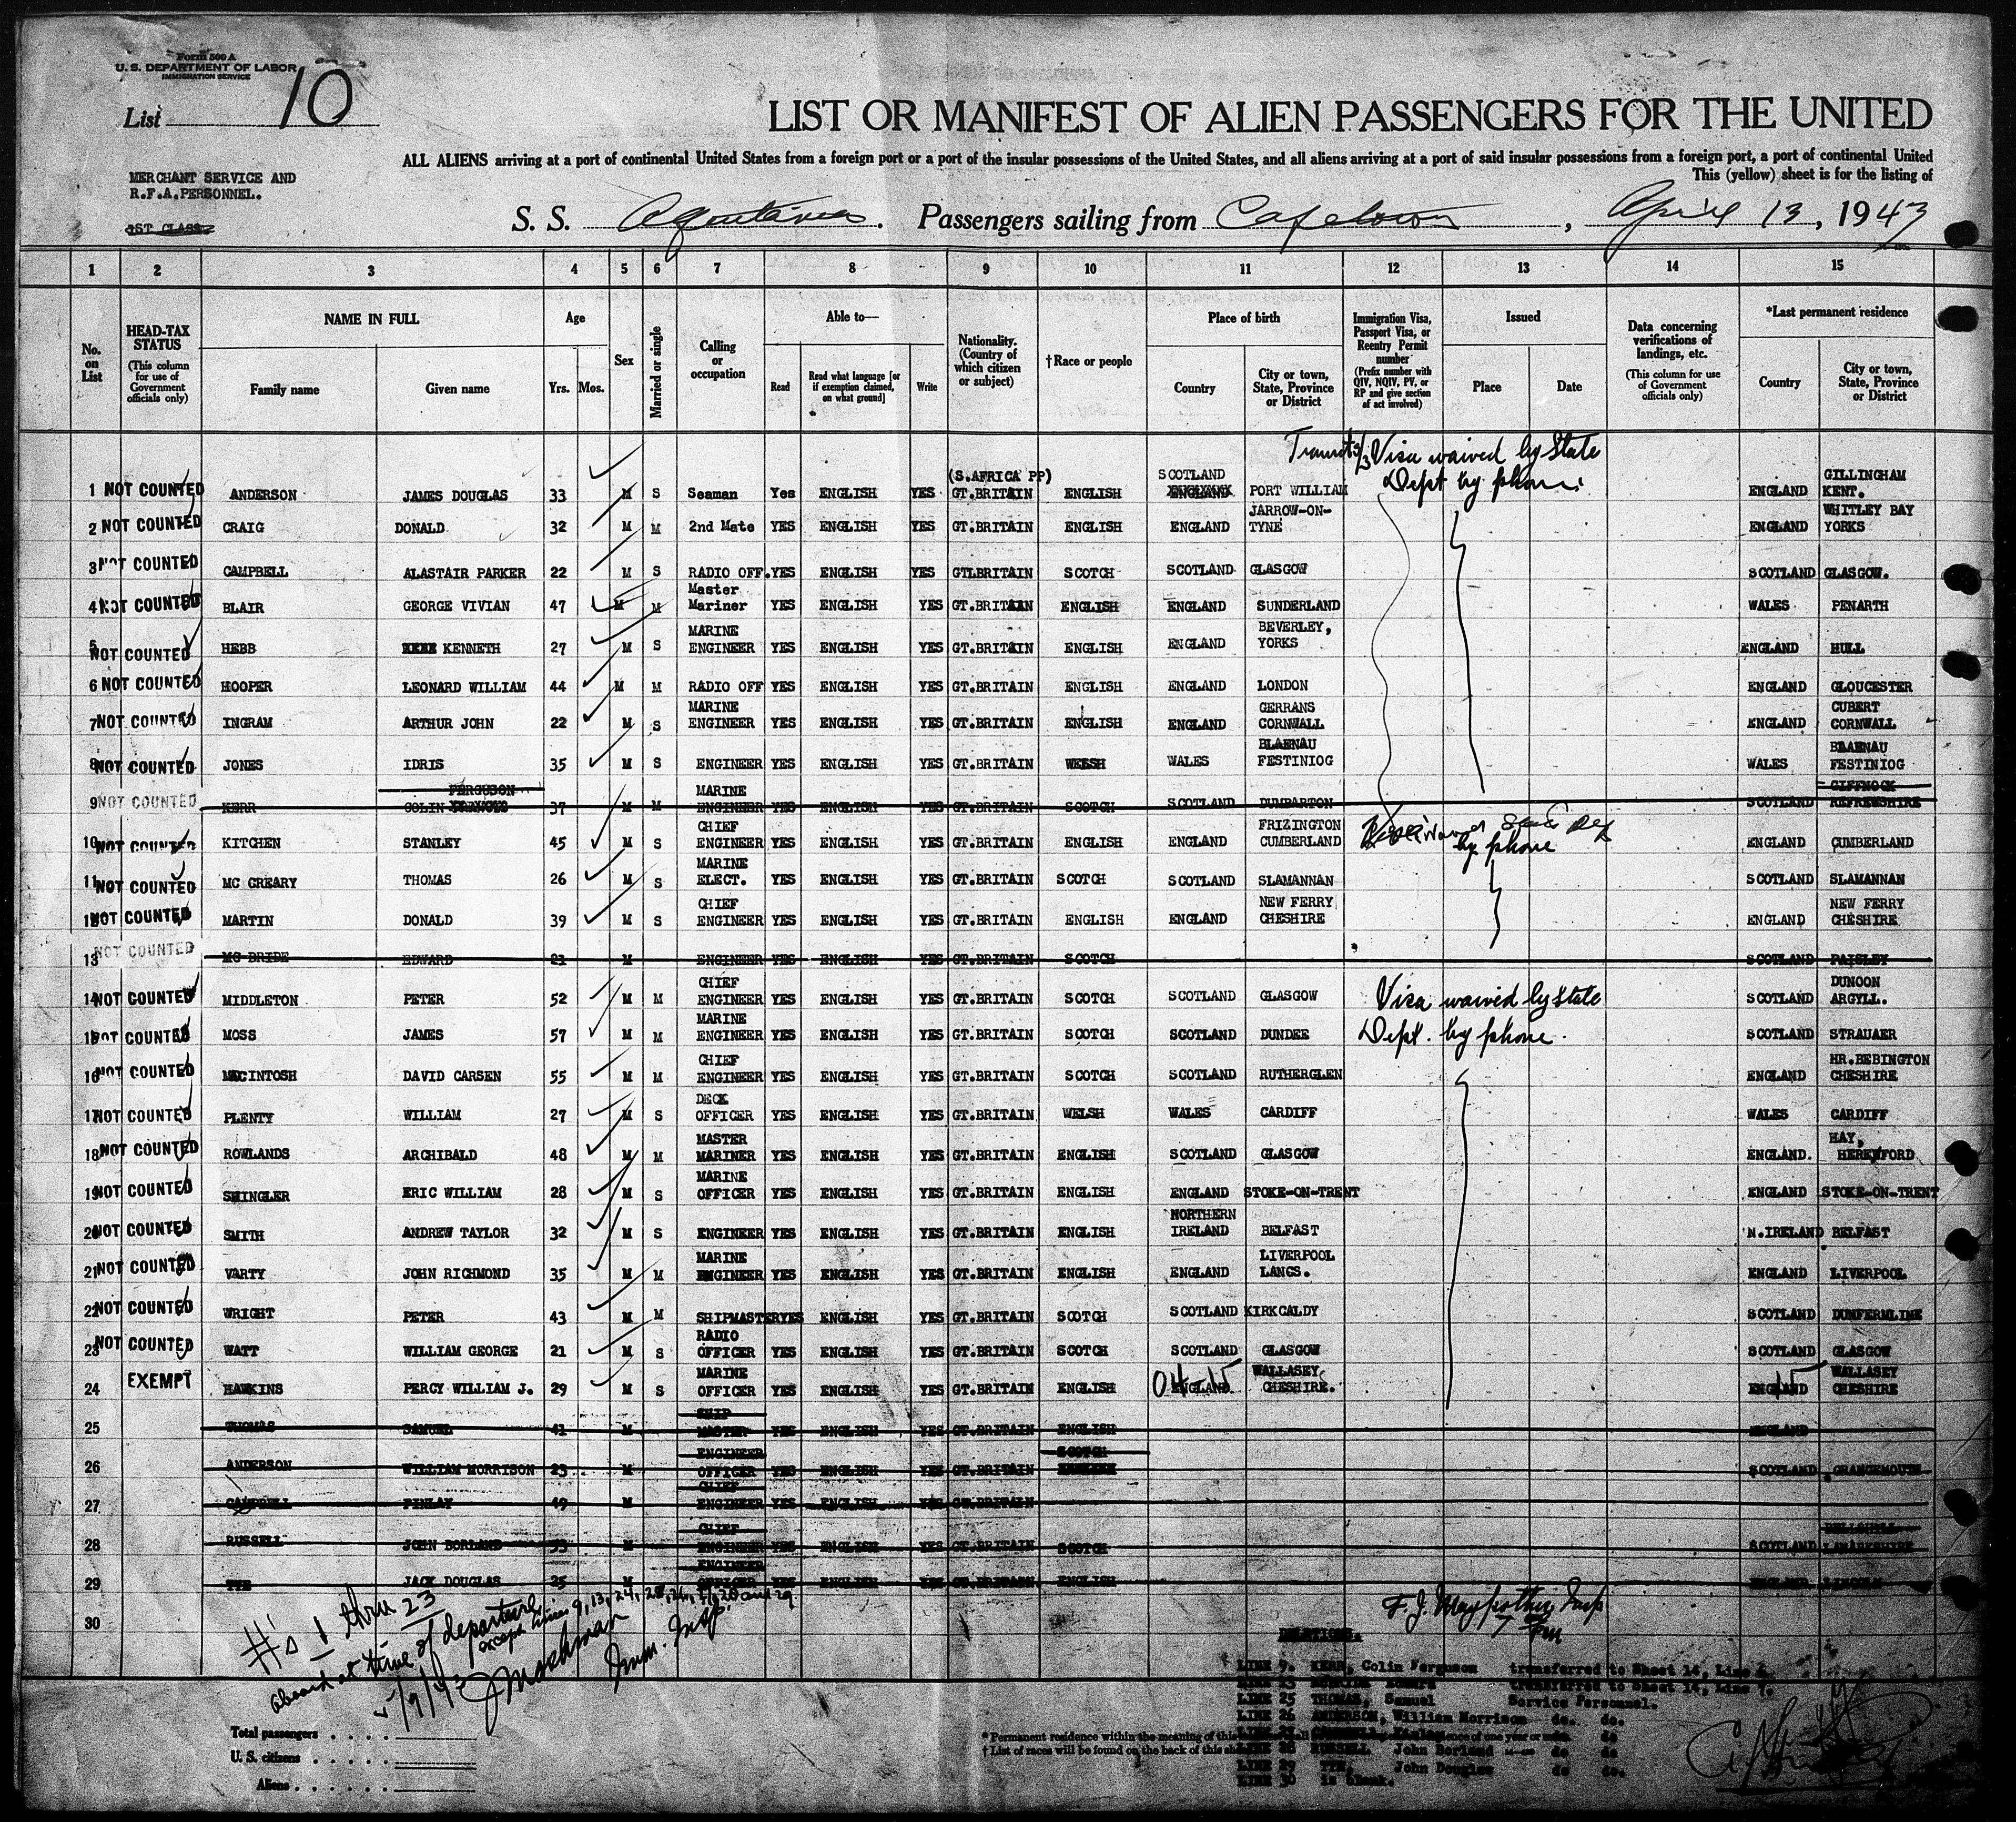 Form 500 A
U. S. DEPARTMENT OF LABOR
IMMIGRATION SERVICE
List 10
LIST OR MANIFEST OF ALIEN PASSENGERS FOR THE UNITED
ALL ALIENS arriving at a port of continental United States from a foreign port or a port of the insular possessions of the United States, and all aliens arriving at a port of said insular possessions from a foreign port, a port of continental United
This (yellow) sheet is for the listing of
MERCHANT SERVICE AND
R.F.A.PERSONNEL.
1ST CLASS
S. S. Aquitania. Passengers sailing from Capetown, April 13, 1943
1 2 3 4 5 6 7 8 9 10 11 12 13 14 15
No. on List
HEAD-TAX STATUS (This column for use of Government officials only)
NAME IN FULL Family name Given name
Age Yrs. Mos.
Sex
Married or single
Calling or occupation
Able to— Read Read what language [or if exemption claimed, on what ground] Write
Nationality. (Country of which citizen or subject)
†Race or people
Place of birth Country City or town, State, Province or District
Immigration Visa, Passport Visa, or Reentry Permit number (Prefix number with QIV, NQIV, PV, or RP and give section of act involved)
Issued Place Date
Data concerning verifications of landings, etc. (This column for use of Government officials only)
*Last permanent residence Country City or town, State, Province or District
Visa waived by State
Dept by phone.
1 NOT COUNTED ANDERSON JAMES DOUGLAS 33 M S Seaman Yes ENGLISH YES (S.AFRICA PP) GT.BRITAIN ENGLISH SCOTLAND ENGLAND PORT WILLIAM ENGLAND GILLINGHAM KENT.
2 NOT COUNTED CRAIG DONALD 32 M M 2nd Mate YES ENGLISH YES GT.BRITAIN ENGLISH ENGLAND JARROW-ON-TYNE ENGLAND WHITLEY BAY YORKS
3 NOT COUNTED CAMPBELL ALASTAIR PARKER 22 M S RADIO OFF. YES ENGLISH YES GTLBRITAIN SCOTCH SCOTLAND GLASGOW SCOTLAND GLASGOW.
4 NOT COUNTED BLAIR GEORGE VIVIAN 47 M M Master Mariner YES ENGLISH YES GT.BRITAIN ENGLISH ENGLAND SUNDERLAND WALES PENARTH
5 NOT COUNTED HEBB KENNETH 27 M S MARINE ENGINEER YES ENGLISH YES GT.BRITAIN ENGLISH ENGLAND BEVERLEY, YORKS ENGLAND HULL
6 NOT COUNTED HOOPER LEONARD WILLIAM 44 M M RADIO OFF YES ENGLISH YES GT.BRITAIN ENGLISH ENGLAND LONDON ENGLAND GLOUCESTER
7 NOT COUNTED INGRAM ARTHUR JOHN 22 M S MARINE ENGINEER YES ENGLISH YES GT.BRITAIN ENGLISH ENGLAND GERRANS CORNWALL ENGLAND CUBERT CORNWALL
8 NOT COUNTED JONES IDRIS 35 M S ENGINEER YES ENGLISH YES GT.BRITAIN WELSH WALES BLAENAU FESTINIOG WALES BLAENAU FESTINIOG
9 NOT COUNTED KERR COLIN FERGUSON 37 M M MARINE ENGINEER YES ENGLISH YES GT.BRITAIN SCOTCH SCOTLAND DUMBARTON SCOTLAND GIFFNOCK REFREWSHIRE
10 NOT COUNTED KITCHEN STANLEY 45 M S CHIEF ENGINEER YES ENGLISH YES GT.BRITAIN ENGLISH ENGLAND FRIZINGTON CUMBERLAND by phone ENGLAND CUMBERLAND
11 NOT COUNTED MC CREARY THOMAS 26 M S MARINE ELECT. YES ENGLISH YES GT.BRITAIN SCOTCH SCOTLAND SLAMANNAN SCOTLAND SLAMANNAN
12 NOT COUNTED MARTIN DONALD 39 M S CHIEF ENGINEER YES ENGLISH YES GT.BRITAIN ENGLISH ENGLAND NEW FERRY CHESHIRE ENGLAND NEW FERRY CHESHIRE
13 NOT COUNTED MC BRIDE EDWARD 21 M ENGINEER YES ENGLISH YES GT.BRITAIN SCOTCH SCOTLAND PAISLEY
14 NOT COUNTED MIDDLETON PETER 52 M M CHIEF ENGINEER YES ENGLISH YES GT.BRITAIN SCOTCH SCOTLAND GLASGOW Visa waived by State SCOTLAND DUNOON ARGYLL.
15 NOT COUNTED MOSS JAMES 57 M M MARINE ENGINEER YES ENGLISH YES GT.BRITAIN SCOTCH SCOTLAND DUNDEE Dept. by phone. SCOTLAND STRAUAER
16 NOT COUNTED MACINTOSH DAVID CARSEN 55 M M CHIEF ENGINEER YES ENGLISH YES GT.BRITAIN SCOTCH SCOTLAND RUTHERGLEN ENGLAND HR.BEBINGTON CHESHIRE
17 NOT COUNTED PLENTY WILLIAM 27 M S DECK OFFICER YES ENGLISH YES GT.BRITAIN WELSH WALES CARDIFF WALES CARDIFF
18 NOT COUNTED ROWLANDS ARCHIBALD 48 M M MASTER MARINER YES ENGLISH YES GT.BRITAIN ENGLISH SCOTLAND GLASGOW ENGLAND. HAY, HEREFORD
19 NOT COUNTED SHINGLER ERIC WILLIAM 28 M S MARINE OFFICER YES ENGLISH YES GT.BRITAIN ENGLISH ENGLAND STOKE-ON-TRENT ENGLAND STOKE-ON-TRENT
20 NOT COUNTED SMITH ANDREW TAYLOR 32 M S ENGINEER YES ENGLISH YES GT.BRITAIN ENGLISH NORTHERN IRELAND BELFAST N.IRELAND BELFAST
21 NOT COUNTED VARTY JOHN RICHMOND 35 M M MARINE ENGINEER YES ENGLISH YES GT.BRITAIN ENGLISH ENGLAND LIVERPOOL LANCS. ENGLAND LIVERPOOL
22 NOT COUNTED WRIGHT PETER 43 M M SHIPMASTER YES ENGLISH YES GT.BRITAIN SCOTCH SCOTLAND KIRKCALDY SCOTLAND DUNFERMLINE
23 NOT COUNTED WATT WILLIAM GEORGE 21 M S RADIO OFFICER YES ENGLISH YES GT.BRITAIN SCOTCH SCOTLAND GLASGOW SCOTLAND GLASGOW
24 EXEMPT HAWKINS PERCY WILLIAM J. 29 M S MARINE OFFICER YES ENGLISH YES GT.BRITAIN ENGLISH ENGLAND WALLASEY CHESHIRE. ENGLAND WALLASEY CHESHIRE
25 THOMAS SAMUEL 41 M SHIP MASTER YES ENGLISH YES GT.BRITAIN ENGLISH ENGLAND
26 ANDERSON WILLIAM MORRISON 23 M ENGINEER OFFICER YES ENGLISH YES GT.BRITAIN SCOTCH SCOTLAND GRANGEMOUTH
27 CAMPBELL FINLAY 49 M CHIEF ENGINEER YES ENGLISH YES GT.BRITAIN
28 RUSSELL JOHN BORLAND 53 M CHIEF ENGINEER YES ENGLISH YES GT.BRITAIN SCOTCH SCOTLAND BELLSHILL LANARKSHIRE
29 TYE JACK DOUGLAS 25 M ENGINEER OFFICER YES ENGLISH YES GT.BRITAIN ENGLISH ENGLAND LINCOLN
30
#'s 1 thru 23
aboard at time of departure
except lines 9, 13, 24, 25, 26, 27, 28 and 29
5/9/43
Imm. Insp.
DELETIONS.
LINE 9. KERR, Colin Ferguson transferred to Sheet 14, Line
transferred to Sheet 14, Line 7.
LINE 25 THOMAS, Samuel Service Personnel.
LINE 26 ANDERSON, William Morrison do. do.
LINE 28 RUSSELL, John Borland do do
LINE 29 TYE, John Douglas do do.
LINE 30 is blank.
Total passengers
U. S. citizens
Aliens
*Permanent residence within the meaning of this
†List of races will be found on the back of this